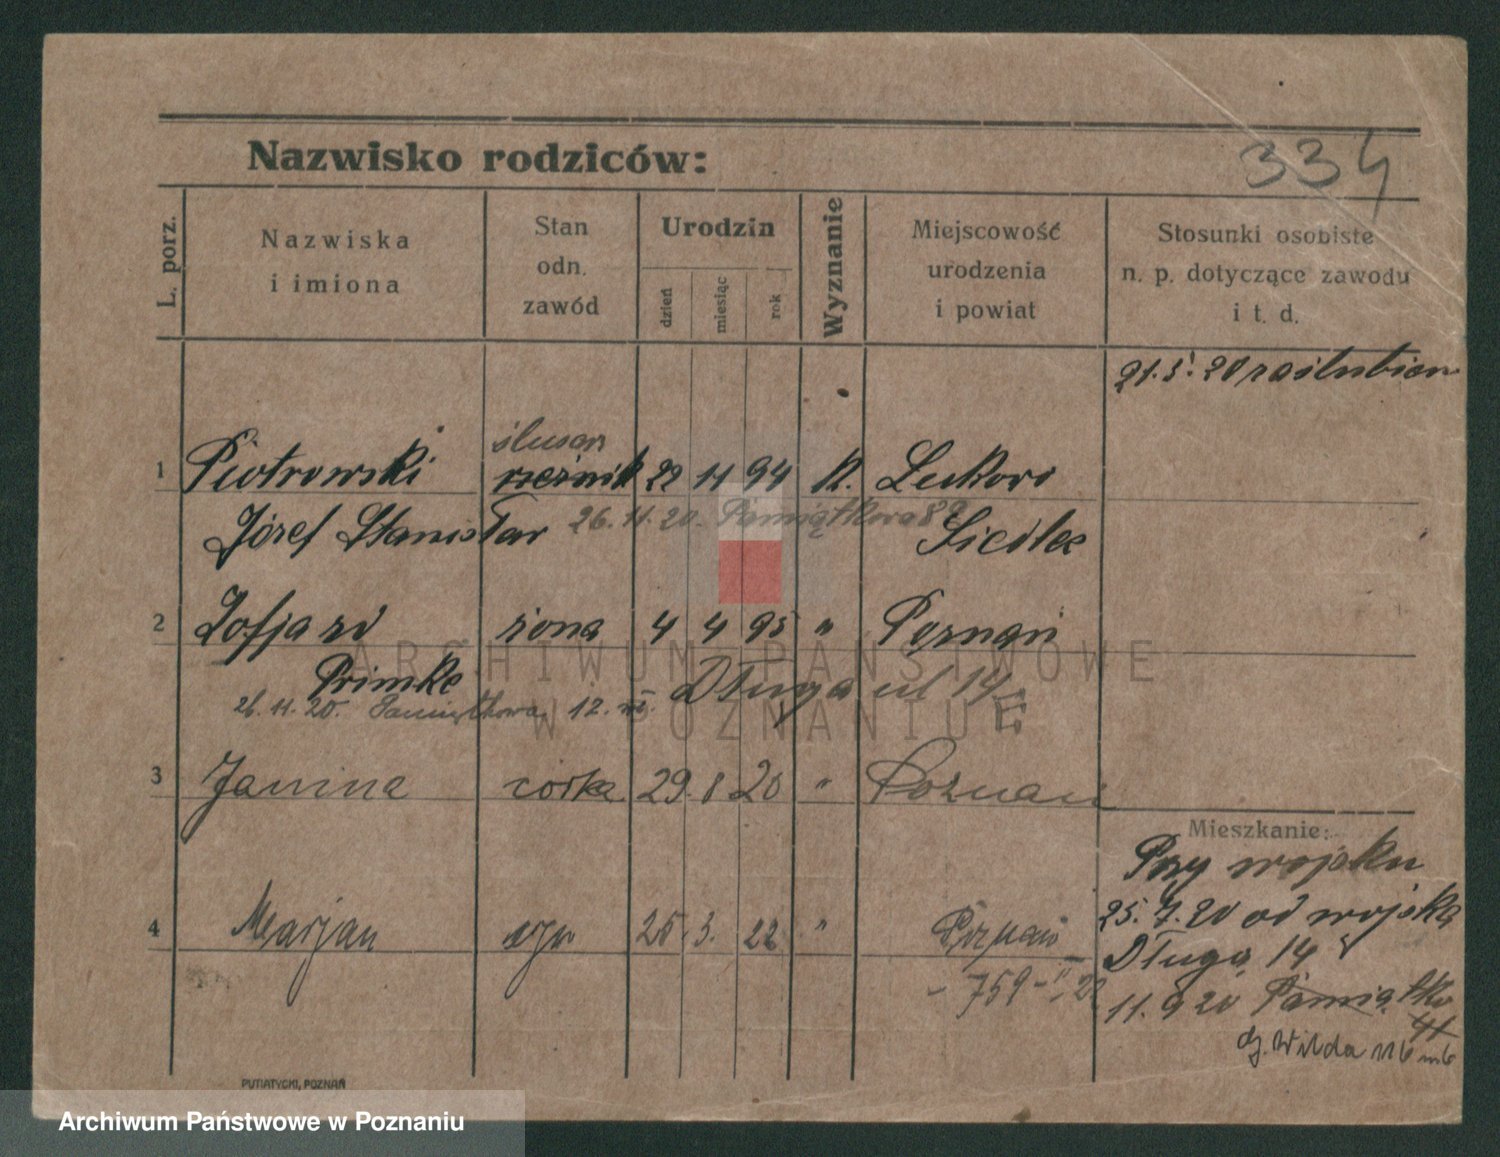 334
Nazwisko rodziców:
L. porz.
Nazwiska
i imiona
Stan
odn.
zawód
Urodzin
dzień
miesiąc
rok
Wyznanie
Miejscowość
urodzenia
i powiat
Stosunki osobiste
n. p. dotyczące zawodu
i t. d.
21.5.20 zaślubion
ślusarz
1 Piotrowski rzeźnik 22 11 94 k. Lukowo
Józef Stanisław 26.11.20. Pamiątkowa Siedlec
2 Zofja zd żona 4 4 95 " Poznań
Primke Długa ul 14
26.11.20. Pamiątkowa 12.
3 Janina córka 29 8 20 " Poznań
Mieszkanie:
Przy wojsku
25.7.20 od wojska
4 Marjan syn 25. 3. 22 " Poznań
Długa 14
- 759 -
11.9 20 Pamiątko
G. Wilda 116 m 6
PUTIATYCKI, POZNAŃ
ARCHIWUM PAŃSTWOWE
W POZNANIU
Archiwum Państwowe w Poznaniu